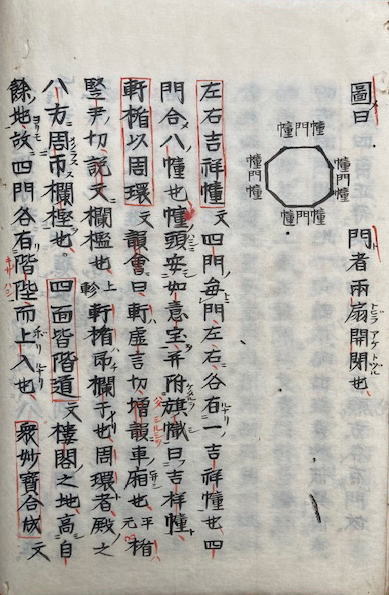 圖曰
幢門幢
幢門幢
幢門幢
幢門幢
門者兩扇開閉也
左右吉祥幢文四門每門左右各有一吉祥幢也四
門合八幢也幢頭安如意宝并附旗幟曰吉祥幢
軒楯以周環文韻會曰軒虛言切增韻車廂也平元楯
竪尹切說文欄檻也上軫軒楯欄于也周環者殿之
八方周帀欄檻也四面皆階道文樓閣之地高自
餘地故四門各有階陛而上入也衆妙寶合成文